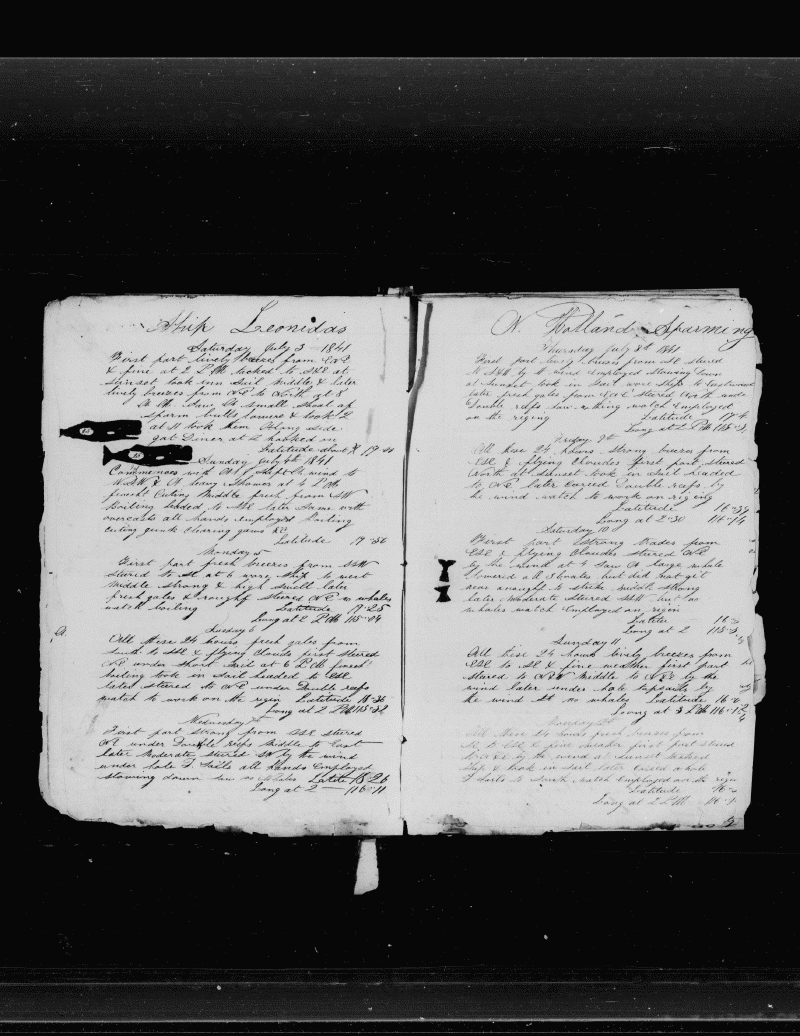 Ship Leonidas
Saturday July 3 1841
First part lively breezes from ENE
& fine at 2 PM tacked to SSE at
sunset took inn sail middle & later
lively breezes from NE to North at 8
AM Saw a small shoal of
sparm bulls lowered & took 2
at 11 took them along side
got Diner at 2 hooked in
Latitude about 17-
Sunday July 4th 1841
Commences with wind to
& heavy showers at 4 PM
finisht Cuting Middle fresh from SW
Boiling headed to SSE later same with
overcasts all hands employed boiling
cuting junk clearing gams &c
Latitude 17-56
Monday 5
First part fresh breezes from SSW
stered to at 6 wore ship to west
middle strong & high swell later
fresh gales & rough stered NE no whales
watch boiling Latitude 17-25
Long at 2 PM 115-04
Tuesday 6
All these 24 hours fresh gales from
South to SSE & flying clouds first stered
NE under short sail at 6 PM finisht
boiling took in sail headed to ESE
later stered to NE under Double reefs
watch to work on the regin Latitude
Long at 2 PM 115-32
Wednesday 7th
First part strong from SSE stered
NE under Double reefs middle to East
later Moderate stered by the wind
under hole T Sails all hands employed
stowing down saw no whales Latite 18-26
Long at 2 116-11
N. Holland Sparming
Thursday July 8th 1841
First part lively breezes from SE stered
by wind employed stowing Down
at sunset took in sail wore ship to eastward
later fresh gales from ESE stered North under
Double reefs saw nothing watch employed
on the riging Latitude 17-4
Long at 2 PM 115-3
Friday 9th
All these 24 hours strong breezes from
ESE & flying Cloudes first part stered
North at sunset took in sail headed
to NE later caried Double reefs by
the wind watch to work on riging
Latitude 16-39
Long at 2-30 114-14
Saturday 10
First part strong trades from
ESE & flying Clouds stered NE
by the wind at 4 saw a large whale
lowered all 3 boats but did not git
near anought to strike middle strong
later Moderate stered but no
whales watch employed on regin
Latite 16
Long at 2 115-3
Sunday 11
All thise 24 hours lively breezes from
ESE to SE & fine weather first part
stered to NNW Middle to NE by the
wind later under hole topsails by
the wind no whales Latitude 16
Long at 3 PM 116-12
Monday 12
All these 24 hours fresh breezes from
SE to ESE & fine weather first part stered
by the wind at sunset tacked
ship & took in sail later caried hole
T Sails to South watch employed on the regin
Latitude 16
Long at 2 PM